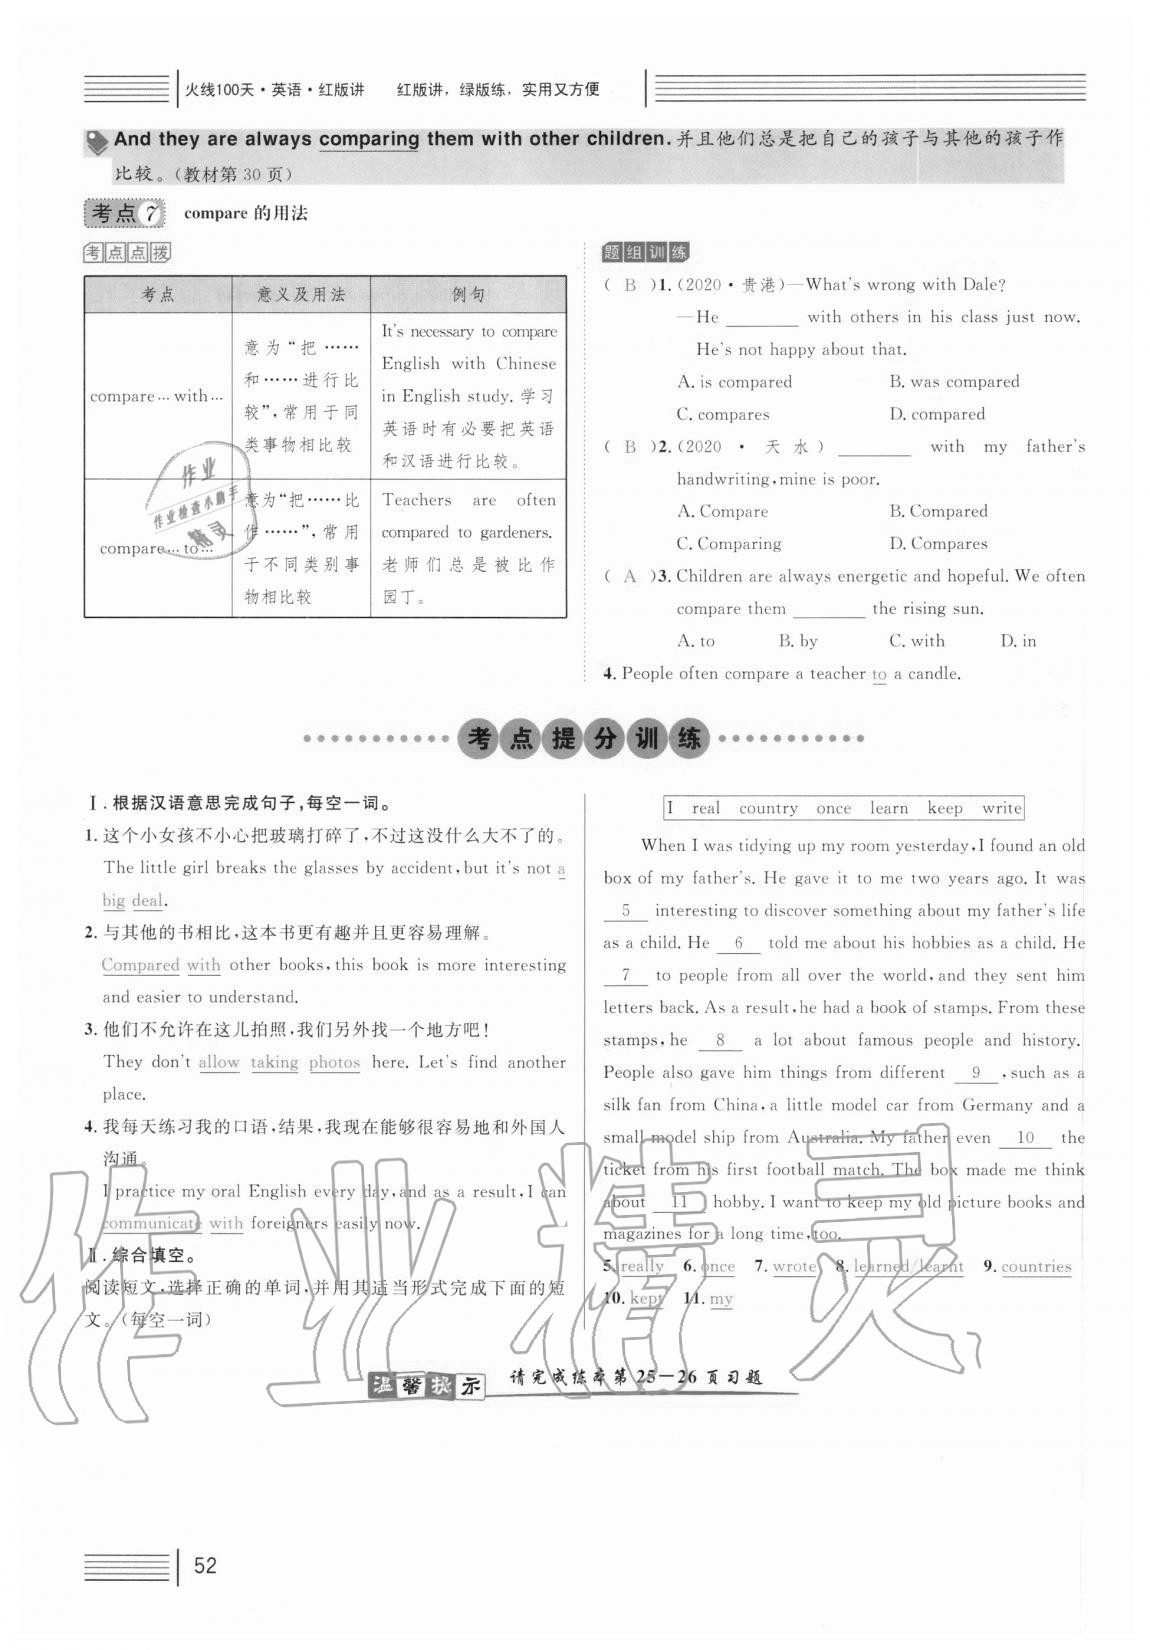 火线100天·英语·红版讲 红版讲，绿版练，实用又方便
And they are always comparing them with other children.并且他们总是把自己的孩子与其他的孩子作
比较。(教材第 30 页)
考点7 compare 的用法
考点点拨
考点 意义及用法 例句
compare…with…
意为“把……
和……进行比
较”,常用于同
类事物相比较
It's necessary to compare
English with Chinese
in English study.学习
英语时有必要把英语
和汉语进行比较。
compare…to…
意为“把……比
作……”,常用
于不同类别事
物相比较
Teachers are often
compared to gardeners.
老师们总是被比作
园丁。
作业
作业检查小助手
精灵
题组训练
( B )1.(2020·贵港)—What's wrong with Dale?
—He ________ with others in his class just now.
He's not happy about that.
A. is compared B. was compared
C. compares D. compared
( B )2.(2020·天水) ________ with my father's
handwriting,mine is poor.
A. Compare B. Compared
C. Comparing D. Compares
( A )3. Children are always energetic and hopeful. We often
compare them ________ the rising sun.
A. to B. by C. with D. in
4. People often compare a teacher to a candle.
考点提分训练
Ⅰ.根据汉语意思完成句子,每空一词。
1. 这个小女孩不小心把玻璃打碎了,不过这没什么大不了的。
The little girl breaks the glasses by accident,but it's not a
big deal.
2. 与其他的书相比,这本书更有趣并且更容易理解。
Compared with other books,this book is more interesting
and easier to understand.
3. 他们不允许在这儿拍照,我们另外找一个地方吧!
They don't allow taking photos here. Let's find another
place.
4. 我每天练习我的口语,结果,我现在能够很容易地和外国人
沟通。
I practice my oral English every day,and as a result,I can
communicate with foreigners easily now.
Ⅱ.综合填空。
阅读短文,选择正确的单词,并用其适当形式完成下面的短
文。(每空一词)
I real country once learn keep write
When I was tidying up my room yesterday,I found an old
box of my father's. He gave it to me two years ago. It was
5 interesting to discover something about my father's life
as a child. He 6 told me about his hobbies as a child. He
7 to people from all over the world,and they sent him
letters back. As a result,he had a book of stamps. From these
stamps,he 8 a lot about famous people and history.
People also gave him things from different 9 ,such as a
silk fan from China,a little model car from Germany and a
small model ship from Australia. My father even 10 the
ticket from his first football match. The box made me think
about 11 hobby. I want to keep my old picture books and
magazines for a long time,too.
5. really 6. once 7. wrote 8. learned/learnt 9. countries
10. kept 11. my
温馨提示 请完成练本第25—26页习题
作业精灵
52